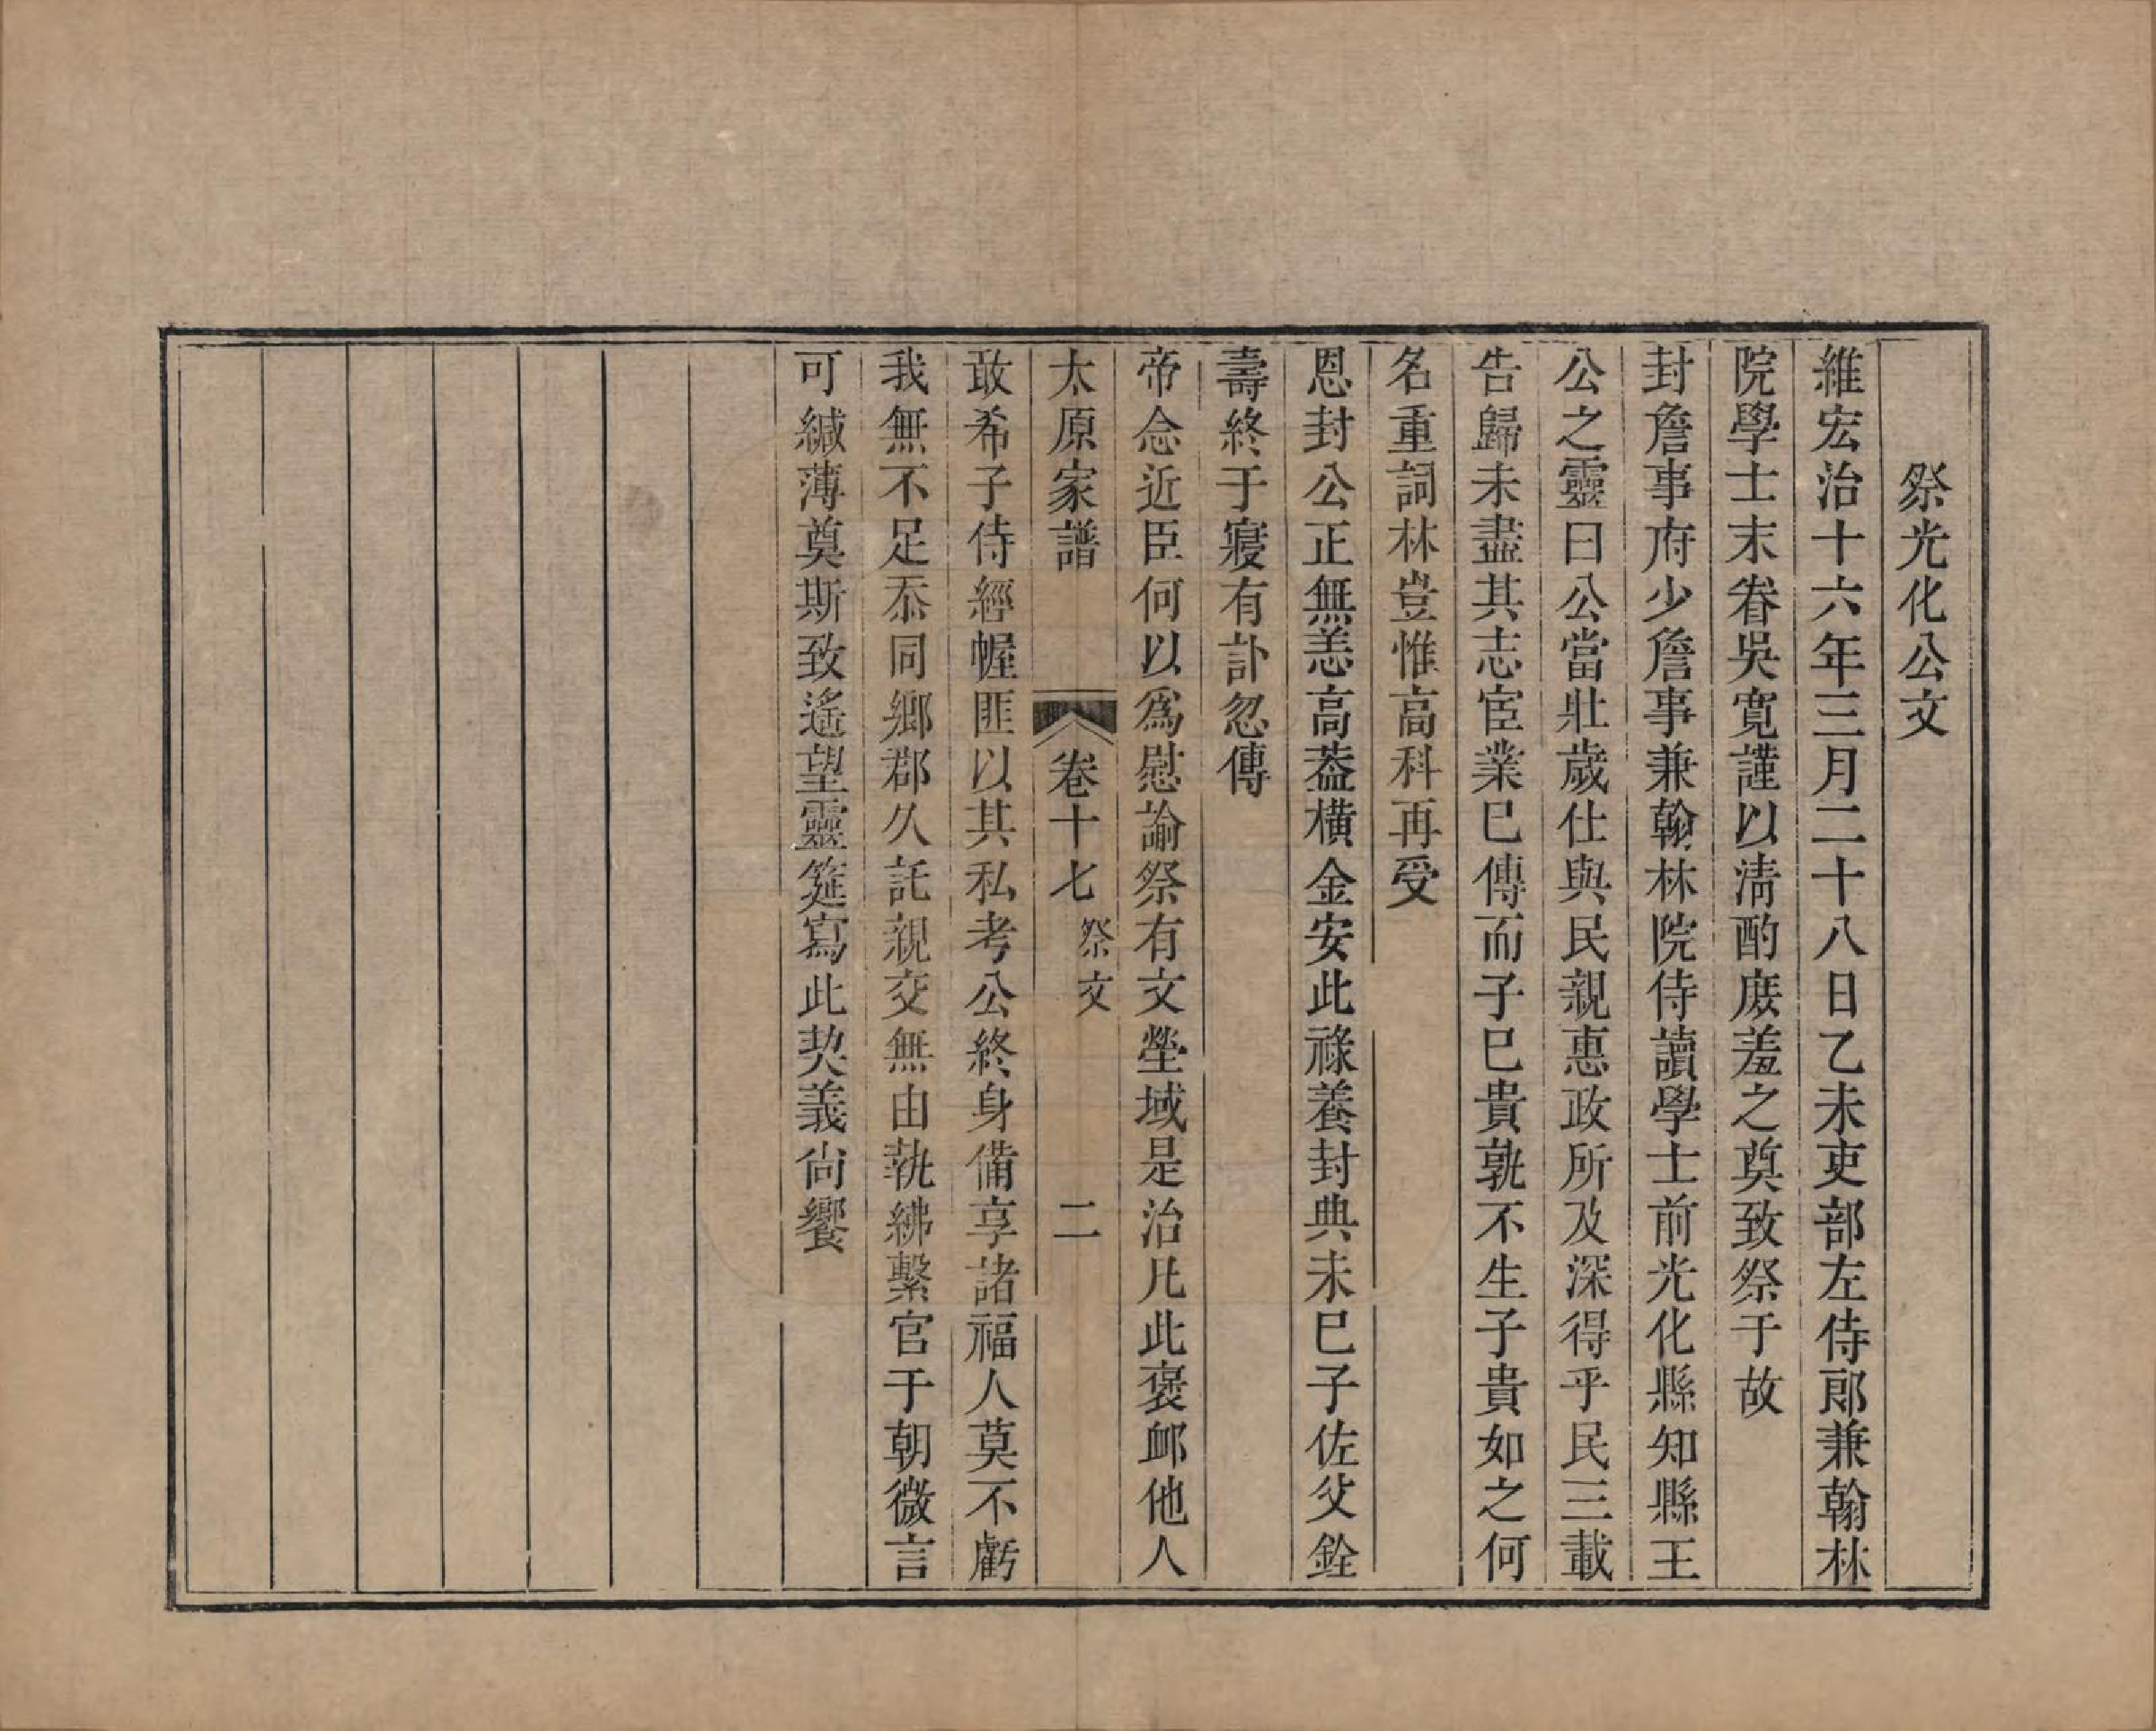 祭光化公文
維宏治十六年三月二十八日乙未吏部左侍郎兼翰林
院學士末眷吳寬謹以淸酌庶羞之奠致祭于故
封詹事府少詹事兼翰林院侍讀學士前光化縣知縣王
公之靈曰公當壯歲仕與民親惠政所及深得乎民三載
告歸未盡其志宦業巳傳而子巳貴孰不生子貴如之何
名重詞林豈惟高科再受
恩封公正無恙高葢橫金安此祿養封典未巳子佐父銓
壽終于寢有訃忽傳
帝念近臣何以爲慰諭祭有文塋域是治凡此褒䘏他人
太原家譜 卷十七 祭文 二
敢希子侍經幄匪以其私考公終身備享諸福人莫不虧
我無不足忝同鄉郡久託親交無由執紼繫官于朝微言
可緘薄奠斯致遙望靈筵寫此契義尙饗